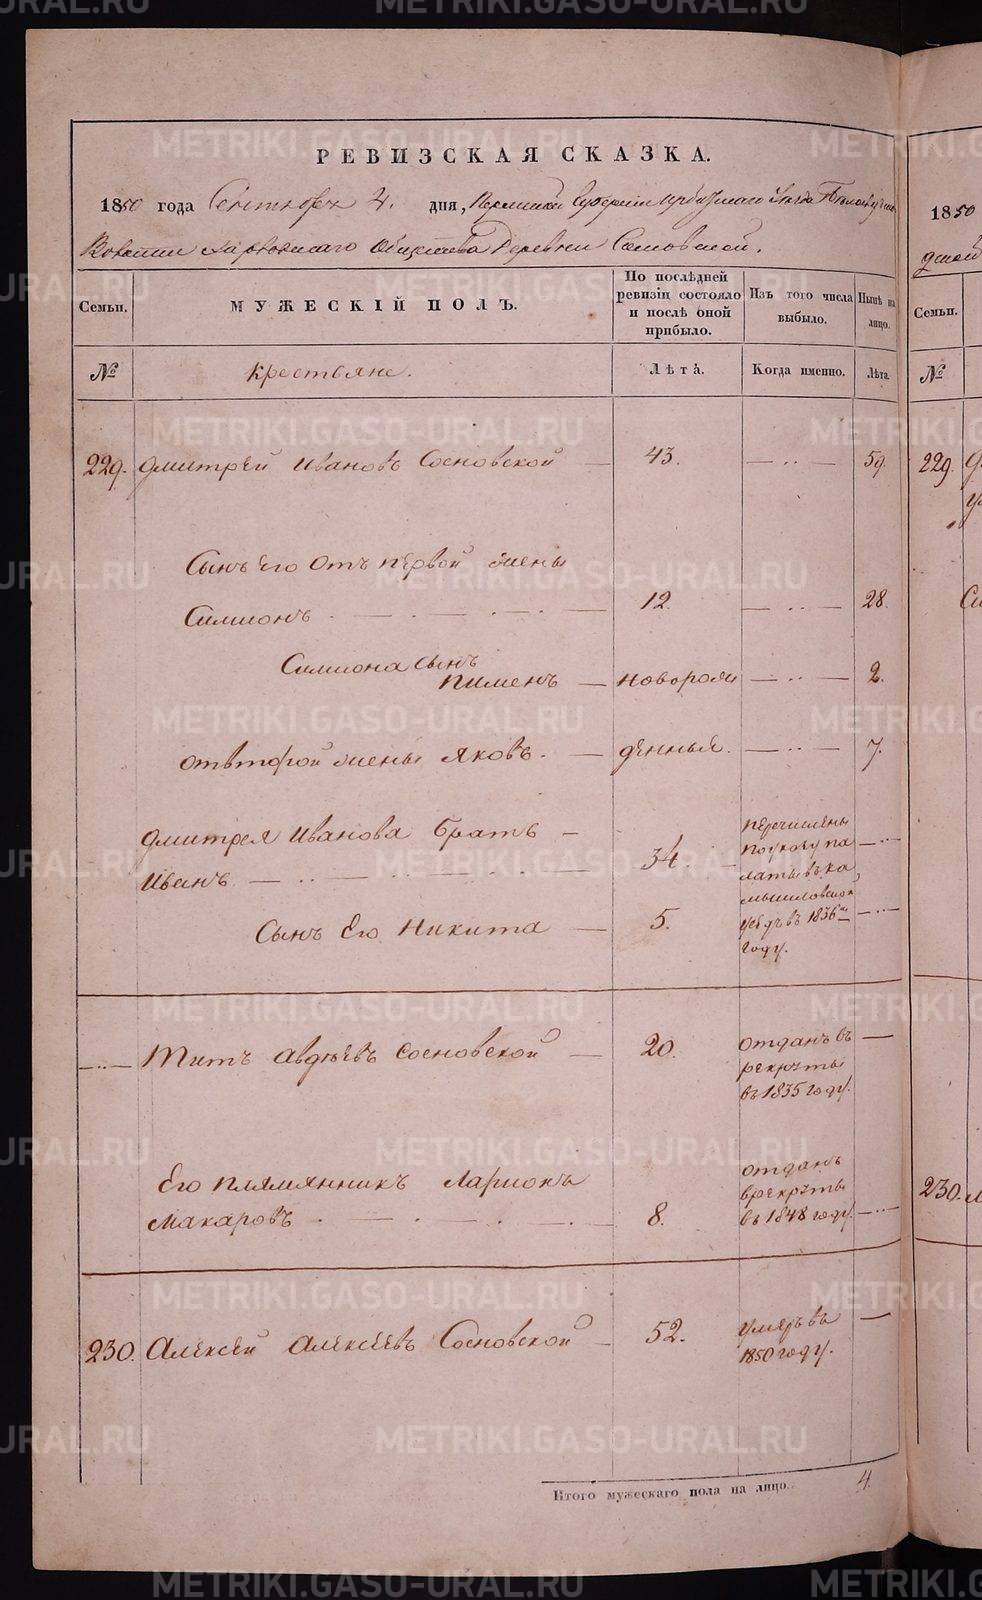 METRIKI.GASO-URAL.RU
РЕВИЗСКАЯ СКАЗКА.
1850 года Сентября 4. дня, Пермской Губернии Ирбитскаго Уезда
Волости Общества Деревни Сосновской.
Семьи.
МУЖЕСКІЙ ПОЛЪ.
По послѣдней ревизіи состояло и послѣ оной прибыло.
Изъ того числа выбыло.
Нынѣ на лицо.
№
Крестьяне.
Лѣта.
Когда именно.
Лѣта.
229. Дмитрей Ивановъ Сосновской 43. 59.
Сынъ его отъ первой жены
Симионъ 12. 28.
Симиона сынъ
Пименъ новорож 2.
отвторой жены Яковъ. денныя. 7.
Дмитрея Иванова братъ
Иванъ 34
Сынъ Его Никита 5.
перечислены
поуказу па
латы вка
мышловской
уѣздъ въ 1836м
году.
Титъ Авдѣевъ Сосновской 20.
отданъ въ
рекруты
въ 1835 году.
Его племянникъ Ларионъ
Макаровъ 8.
отданъ
врекруты
въ 1848 году.
230. Алексей Алексеевъ Сосновской 52.
умеръ въ
1850 году.
Итого мужескаго пола на лицо. 4.
1850
Семьи.
№
229.
230.